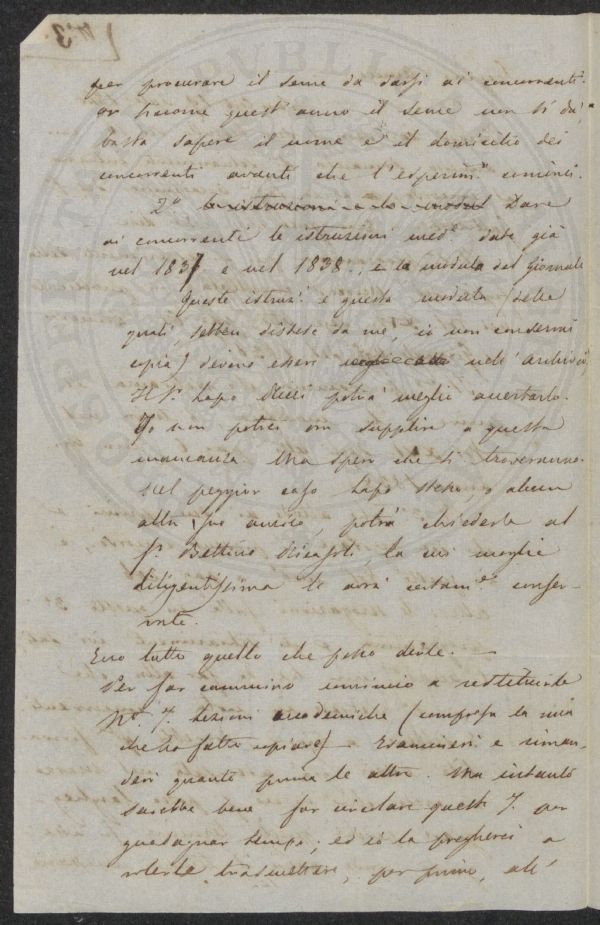 per procurare il seme da darsi ai concorrenti.
or siccome quest'anno il seme non si dà,
basta sapere il nome e il domicilio dei
concorrenti avanti che l'esperim.to cominci.
2.o le istruzioni e lo Dare
ai concorrenti le istruzioni med.e date già
nel 1837 e nel 1838, e la modula del Giornale
Queste istruz.i e questa modula (delle
quali, sebben distese da me, io non conservai
copia) devono essere nell'archivio.
Il S.r Lapo Ricci potrà meglio accertarlo.
Io non potrei ora supplire a questa
mancanza. Ma spero che si troveranno.
Nel peggior caso Lapo stesso, o alcun
altro suo amico, potrà chiederle al
S.r Bettino Ricasoli, la cui moglie
diligentissima le avrà certam.e conser-
vate.
Ecco tutto quello che posso dirle. —
Per far cammino comincio a restituirle
N.o 7. Lezioni accademiche (compresa la mia
che ho fatto copiare) — Esaminerò e riman-
derò quanto prima le altre. Ma intanto
sarebbe bene far circolare queste 7. per
guadagnar tempo; ed io la pregherei a
volerle trasmettere, per primo, all'